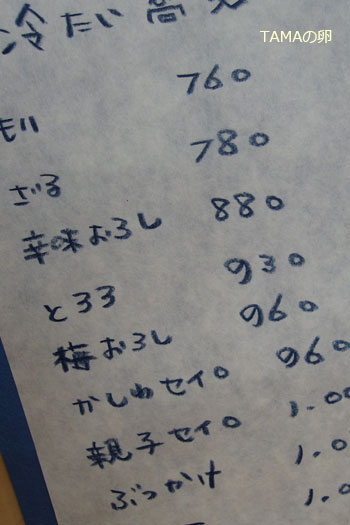 TAMAの卵
冷たい
もり 760
ざる 780
辛味おろし 880
とろろ 930
梅おろし 960
かしわセイロ 960
親子セイロ 1.00
ぶっかけ 1.0
1.0